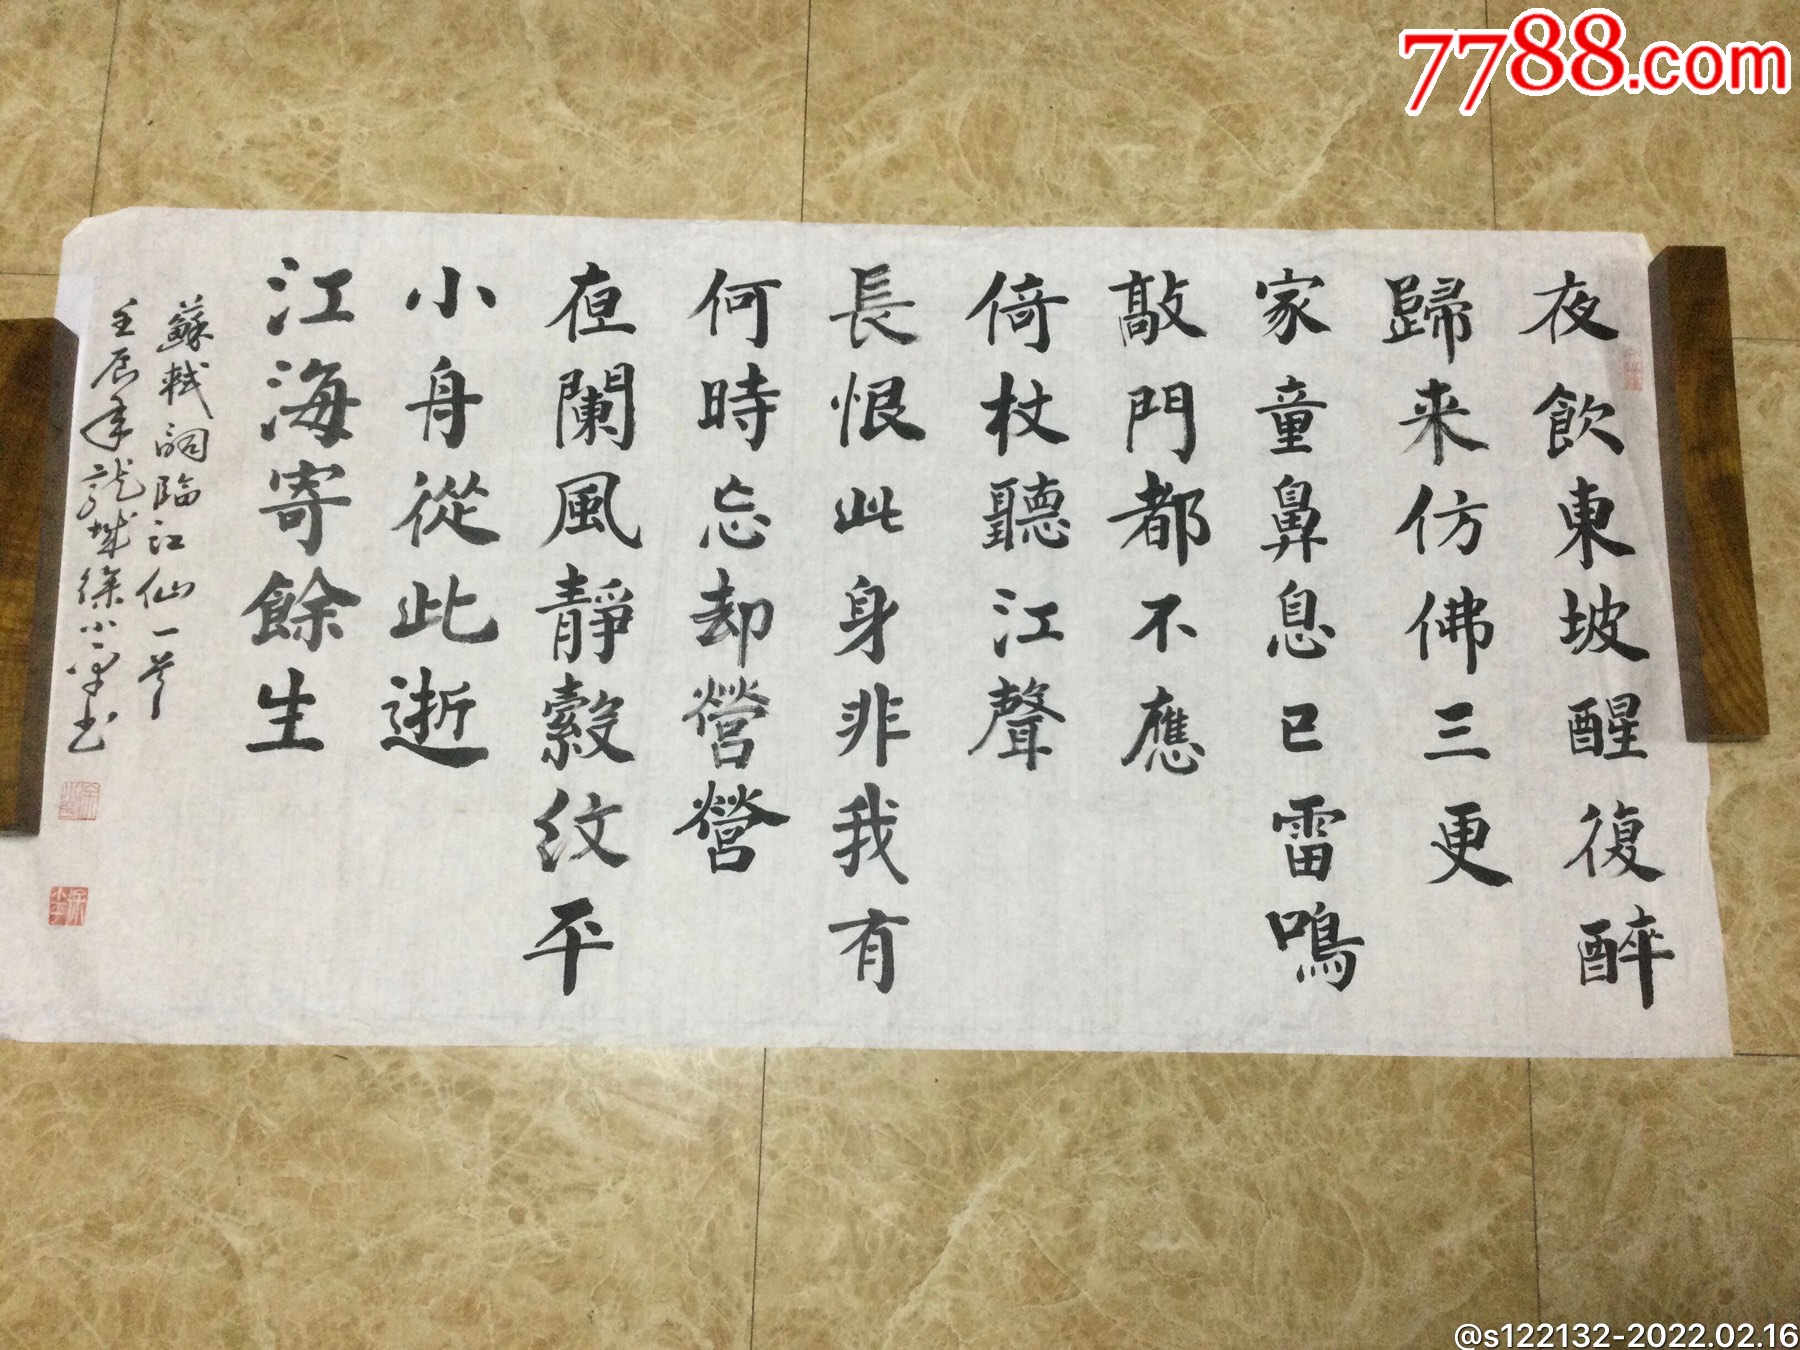 7788.com
夜飲東坡醒復醉
歸来仿佛三更
家童鼻息已雷鳴
敲門都不應
倚杖聽江聲
長恨此身非我有
何時忘却營營
夜闌風靜縠紋平
小舟從此逝
江海寄餘生
蘇軾詞臨江仙一首
壬辰年龍城徐小平书
@s122132-2022.02.16